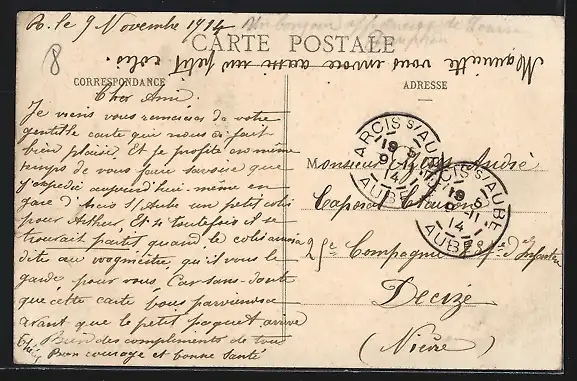 R. le 9 Novembre 1914
CARTE POSTALE
Mauricette vous envoie aussi un petit colis.
8
CORRESPONDANCE
ADRESSE
Cher Ami.
Je viens vous remercier de votre
gentille carte qui nous a fait
bien plaisir. Et je profite en même
temps de vous faire savoir que
j'expédie aujourd'hui même en
gare d'Arcis s/ Aube un petit colis
pour Arthur, Et si toutefois il se
trouvait partit quand le colis arrivera
dite au vaguemestre qu'il vous le
garde pour vous, Car sans doute
que cette carte vous parviendra
avant que le petit paquet arrive
Bien des compliments de tous
Bon courage et bonne santé
Monsieur André
Caporal
2e Compagnie d'Infanterie
Decize
(Nièvre)
ARCIS S/AUBE
9-11
14
AUBE
ARCIS S/AUBE
9-11
14
AUBE